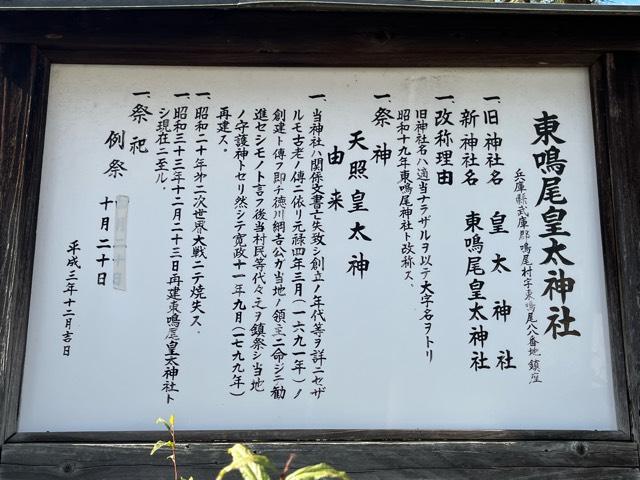 東鳴尾皇太神社
兵庫縣武庫郡鳴尾村字東鳴尾八八番地鎮座
一、旧神社名 皇太神社
新神社名 東鳴尾皇太神社
一、改称理由
旧神社名ハ適当ナラザルヲ以テ大字名ヲトリ
昭和十九年東鳴尾神社ト改称ス、
一、祭神
天照皇太神
由来
一、当神社ハ関係文書亡失致シ創立ノ年代等ヲ詳ニセザ
ルモ古老ノ傳ニ依リ元禄四年三月(一六九一年)ノ
創建ト傳ヘ即チ徳川綱吉公ガ当地ノ領主ニ命ジテ勧
進セシモノト言フ後当村民等代々之ヲ鎮祭シ当地
ノ守護神トセリ然シテ寛政十一年九月(一七九九年)
再建ス、
一、昭和二十年第二次世界大戦ニテ焼失ス、
一、昭和三十三年十二月二十三日再建東鳴尾皇太神社ト
シ現在ニ至ル、
一、祭祀
例祭
十月二十日
平成三年十二月吉日